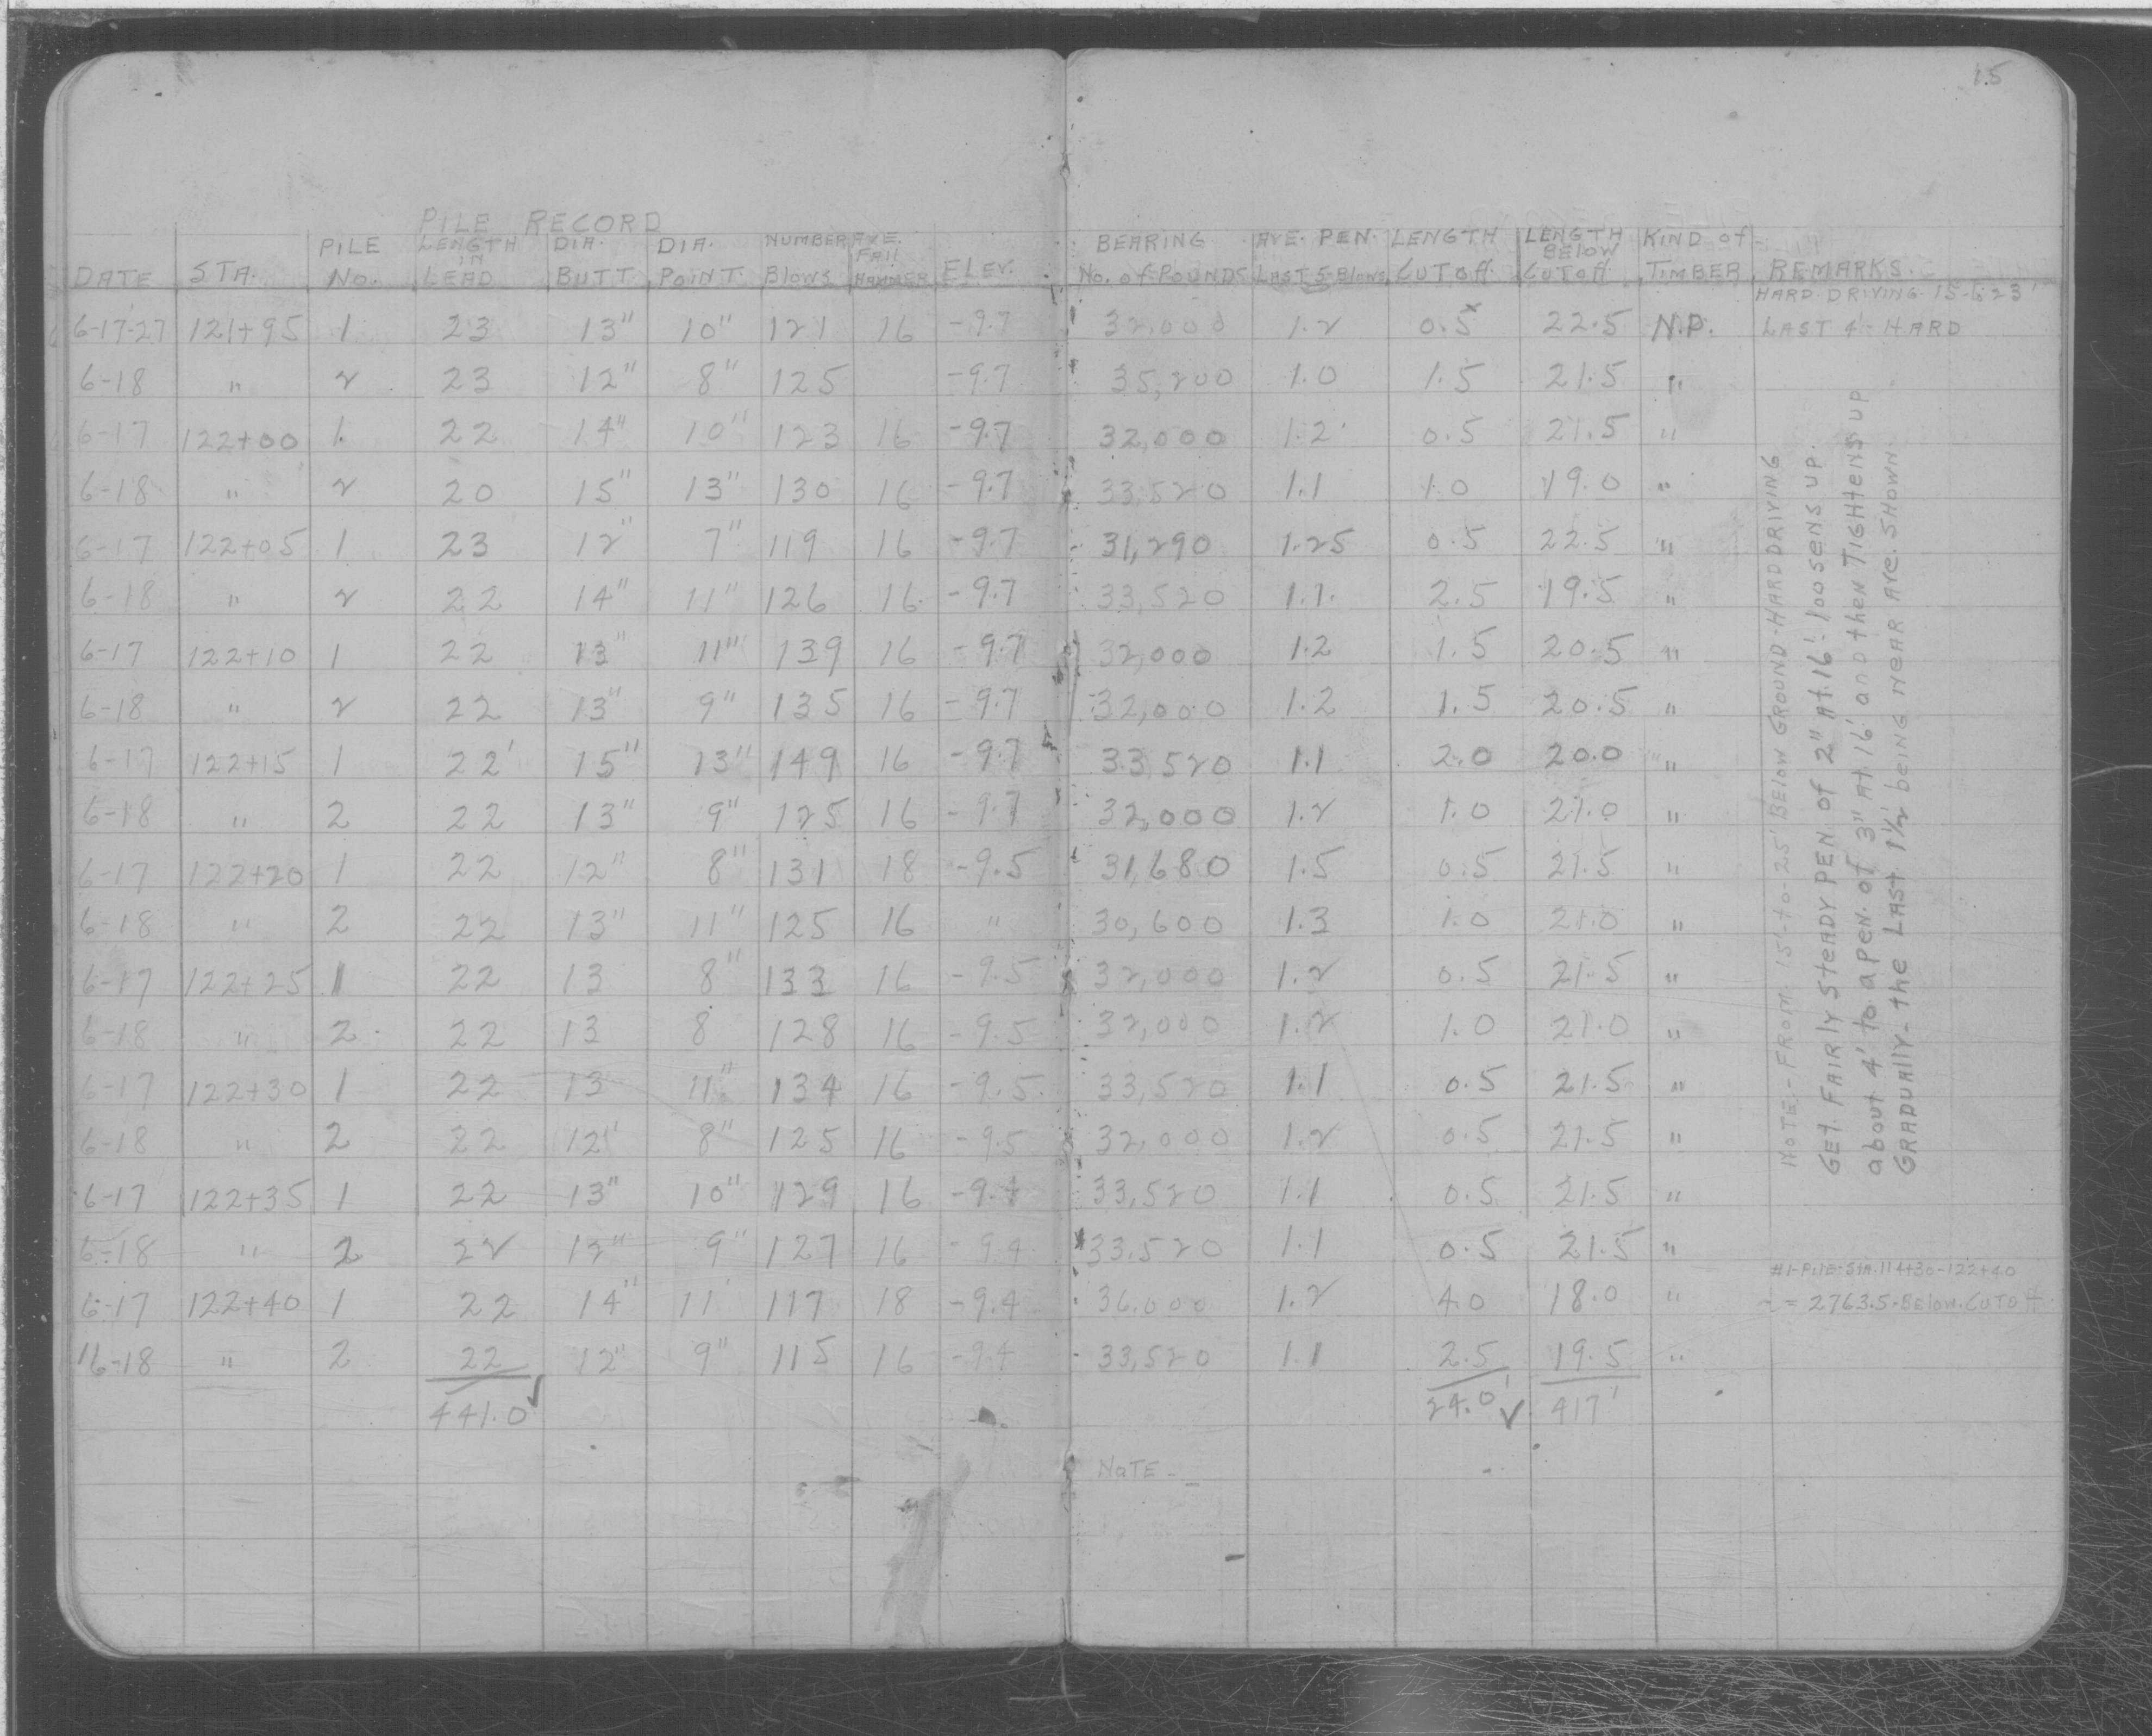 15
PILE RECORD
DATE STA. PILE No. LENGTH IN LEAD DIA. BUTT. DIA. POINT. NUMBER Blows AVE. FALL HAMMER ELEV. BEARING No. of POUNDS AVE. PEN. LAST 5 Blows LENGTH CUTOFF. LENGTH BELOW CUTOFF KIND of TIMBER REMARKS.
HARD DRIVING 15-to 23'
6-17-27 121+95 1 23 13" 10" 121 16 -9.7 32,000 1.2 0.5 22.5 N.P. LAST 4'- HARD
6-18 " 2 23 12" 8" 125 -9.7 35,200 1.0 1.5 21.5 "
6-17 122+00 1. 22 14" 10" 123 16 -9.7 32,000 1.2 0.5 21.5 "
6-18 " 2 20 15" 13" 130 16 -9.7 33,520 1.1 1.0 19.0 "
6-17 122+05 1 23 12" 7" 119 16 -9.7 31,290 1.25 0.5 22.5 "
6-18 " 2 22 14" 11" 126 16 -9.7 33,520 1.1 2.5 19.5 "
6-17 122+10 1 22 13" 11" 139 16 -9.7 32,000 1.2 1.5 20.5 "
6-18 " 2 22 13" 9" 135 16 -9.7 32,000 1.2 1.5 20.5 "
6-17 122+15 1 22' 15" 13" 149 16 -9.7 33,520 1.1 2.0 20.0 "
6-18 " 2 22 13" 9" 125 16 -9.7 32,000 1.2 1.0 21.0 "
6-17 122+20 1 22 12" 8" 131 18 -9.5 31,680 1.5 0.5 21.5 "
6-18 " 2 22 13" 11" 125 16 " 30,600 1.3 1.0 21.0 "
6-17 122+25 1 22 13 8" 133 16 -9.5 32,000 1.2 0.5 21.5 "
6-18 " 2 22 13 8 128 16 -9.5 32,000 1.2 1.0 21.0 "
6-17 122+30 1 22 13 11" 134 16 -9.5 33,520 1.1 0.5 21.5 "
6-18 " 2 22 12" 8" 125 16 -9.5 32,000 1.2 0.5 21.5 "
6-17 122+35 1 22 13" 10" 129 16 -9.4 33,520 1.1 0.5 21.5 "
6-18 " 2 22 12" 9" 127 16 -9.4 33,520 1.1 0.5 21.5 "
6-17 122+40 1 22 14" 11 117 18 -9.4 36,000 1.2 4.0 18.0 "
6-18 " 2 22 12" 9" 115 16 -9.4 33,520 1.1 2.5 19.5 "
441.0 ✓ 24.0' ✓ 417'
NOTE
NOTE- FROM 15'-to-25' Below GROUND-HARD DRIVING
GET. FAIRLY STEADY PEN of 2" At 16'- loosens up.
about 4' to a PEN. of 3" At 16' and then TIGHTENS UP
GRADUALLY- the LAST 1½' being NEAR Are SHOWN.
#1-PILE-STA. 114+30-122+40
= 2763.5-Below.CUTOFF